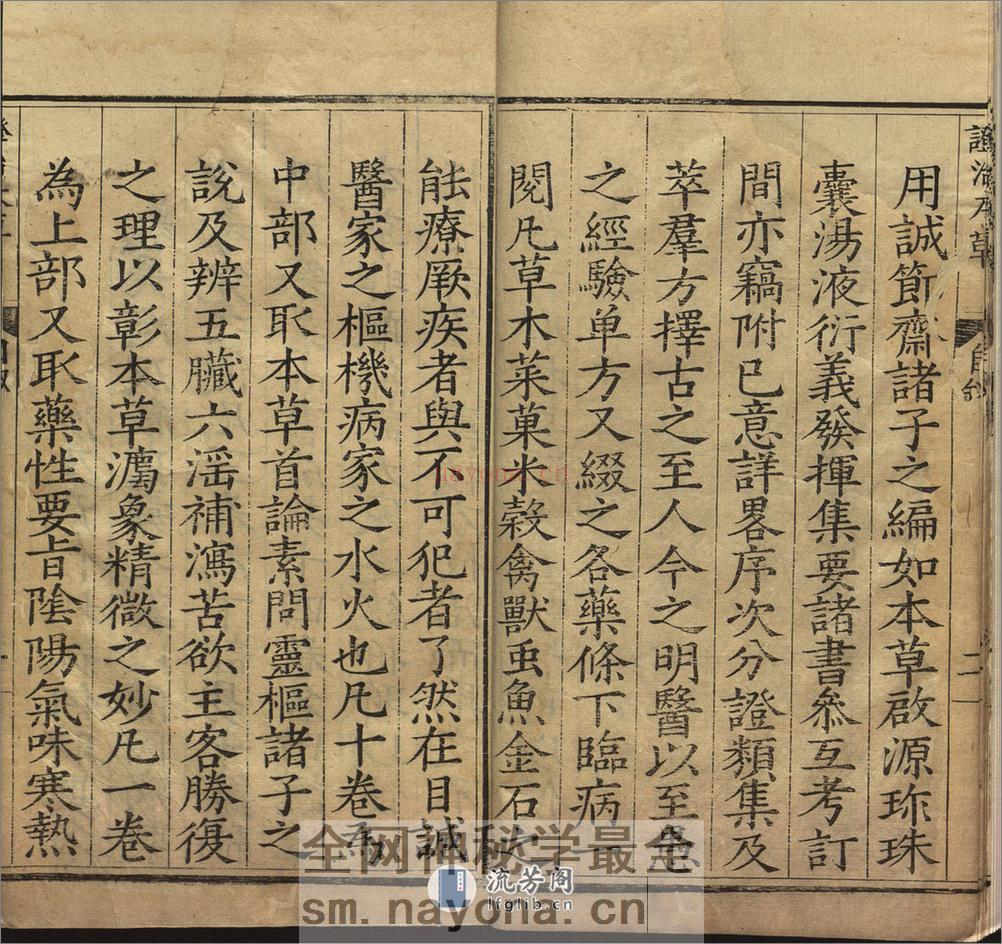 證治本草
自敘
二
用誠節齋諸子之編如本草啟源珎珠
囊湯液衍義發揮集要諸書叅互考訂
間亦竊附已意詳畧序次分證類集及
萃羣方擇古之至人今之明醫以至
之經驗单方又綴之各藥條下臨病一
閱凡草木菜菓米榖禽獸虫魚金石之
能療厥疾者與不可犯者了然在目誠
醫家之樞機病家之水火也凡十卷為
中部又取本草首論素問靈樞諸子之
說及辨五臟六淫補瀉苦欲主客勝復
之理以彰本草瀉象精微之妙凡一卷
為上部又取藥性要旨陰陽氣味寒熱
nayona.cn
全网神秘学最全
流芳阁
lfglib.cn
sm.nayona.cn